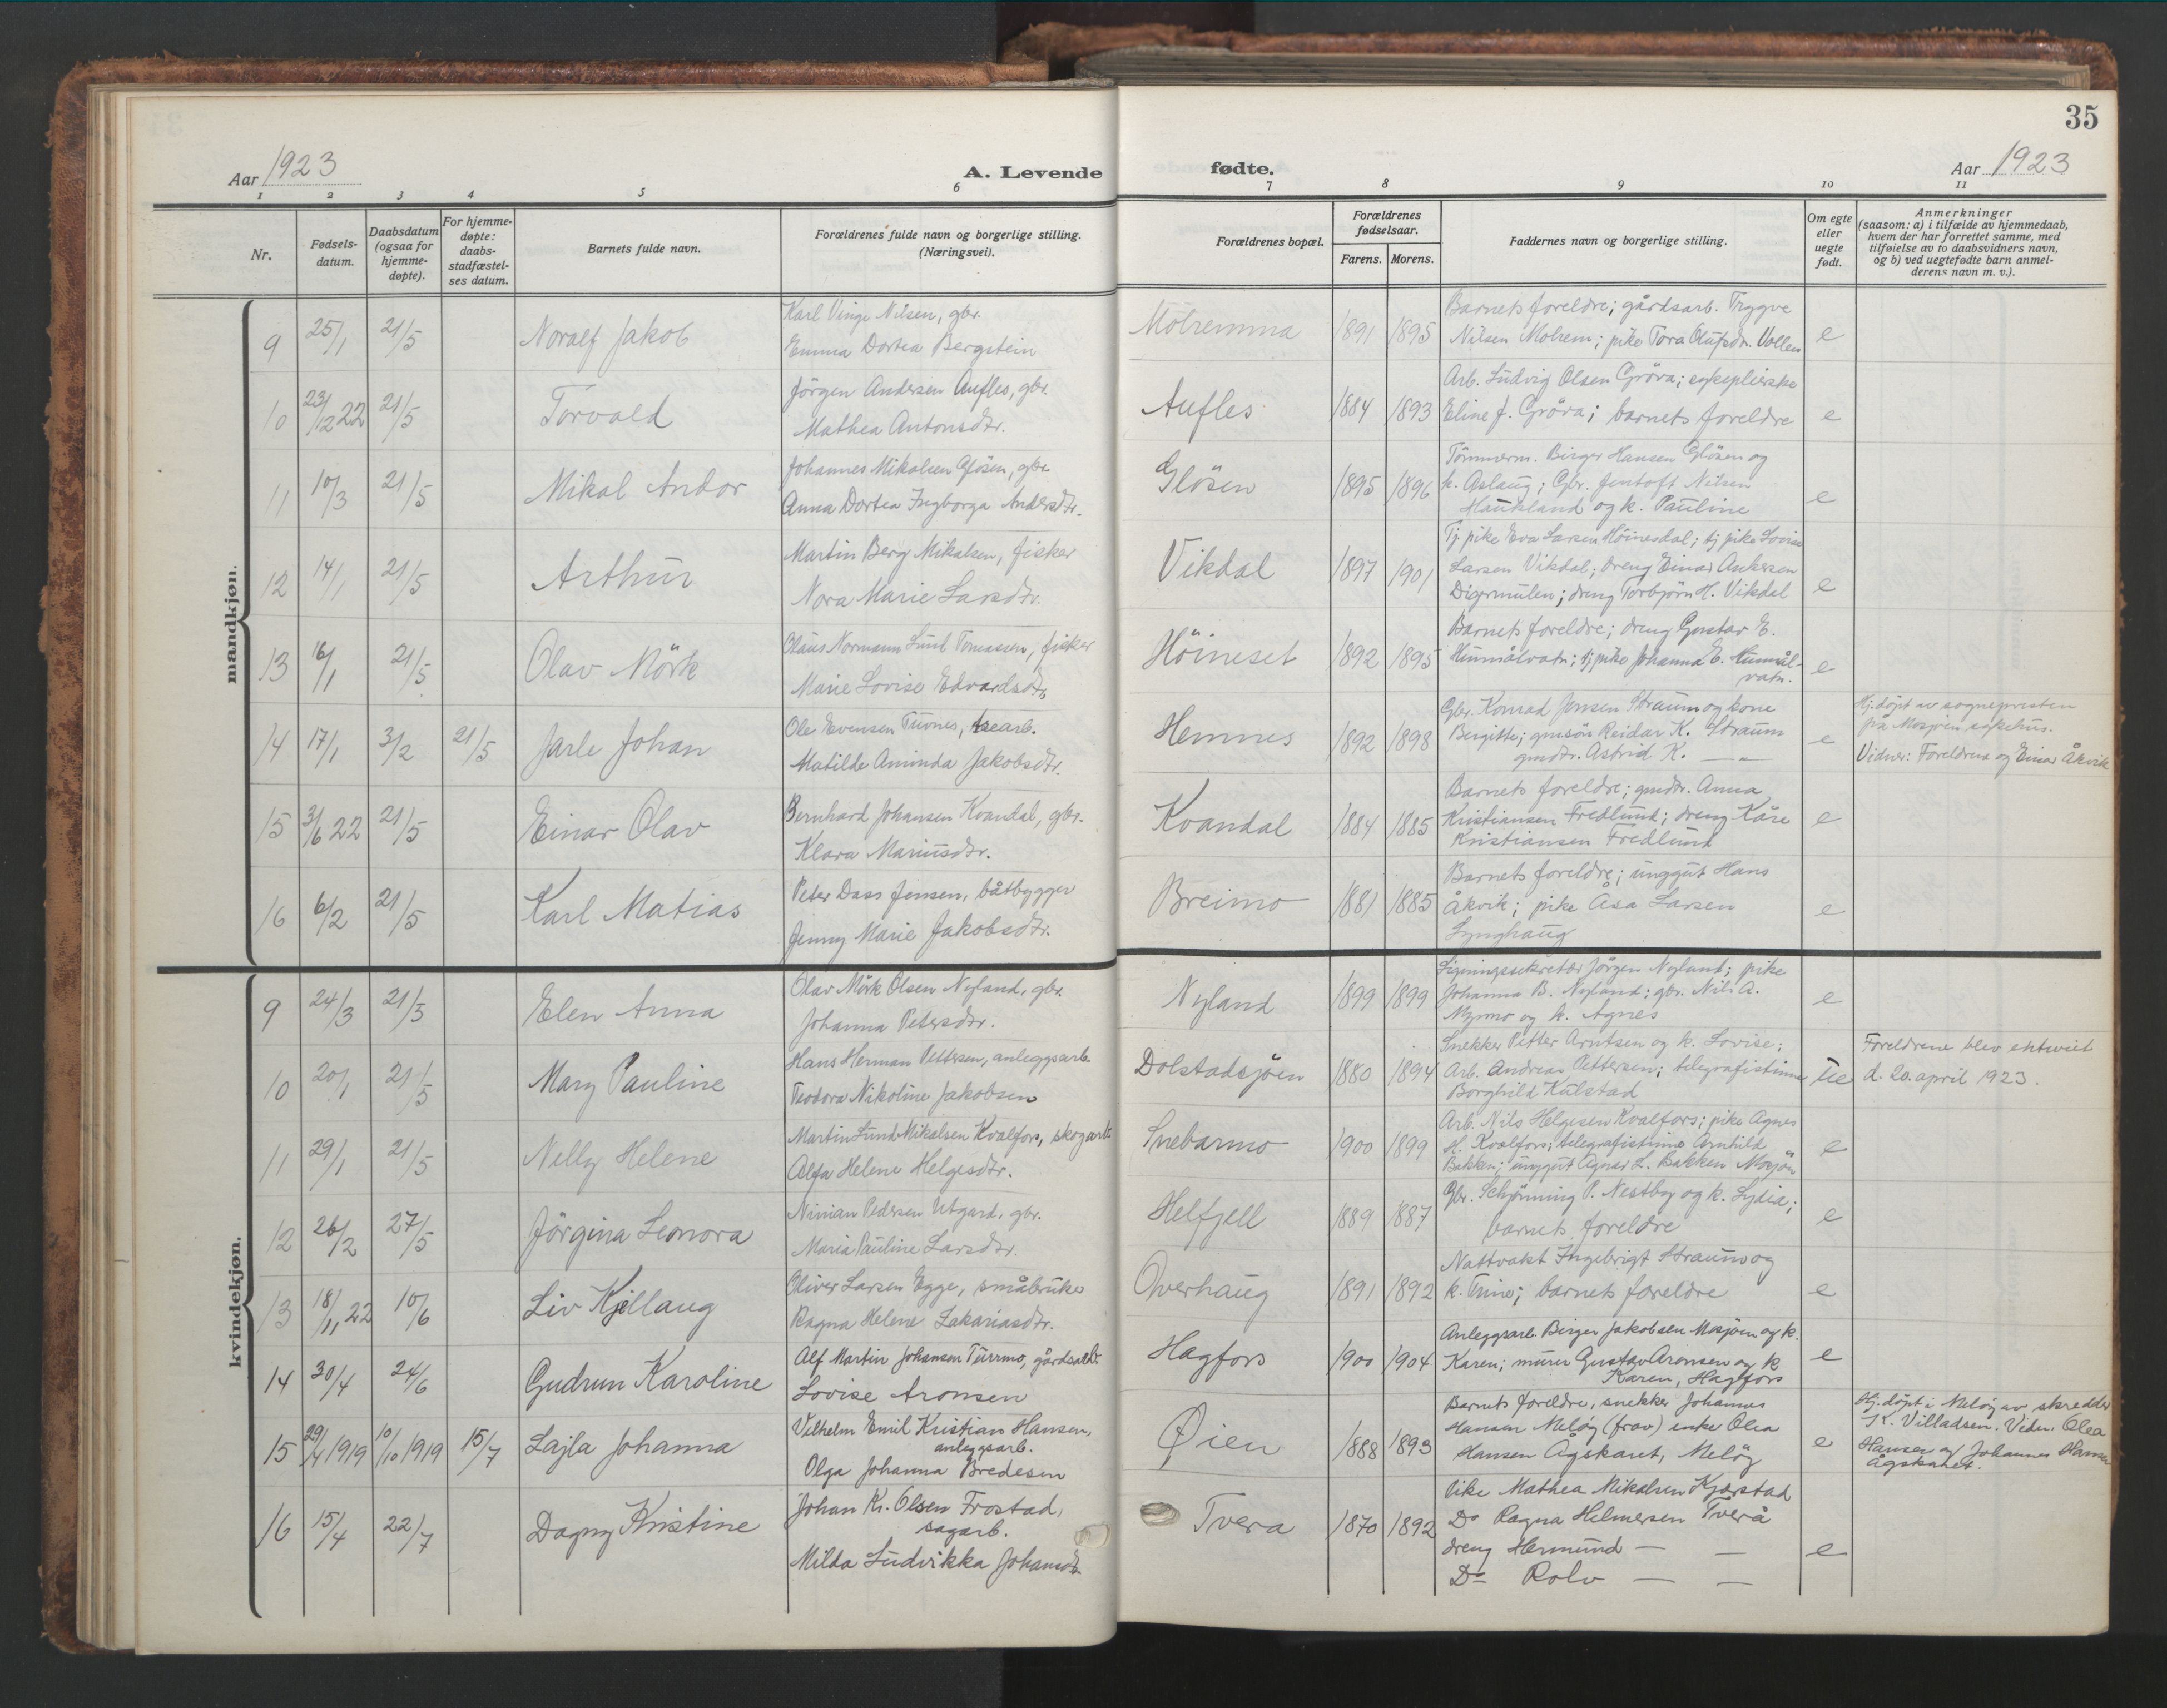 35
Aar 1923
A. Levende fødte.
Aar 1923
1 2 3 4 5 6 7 8 9 10 11
Nr.
Fødsels-
datum.
Daabsdatum
(ogsaa for
hjemme-
døpte).
For hjemme-
døpte:
daabs-
stadfæstel-
ses datum.
Barnets fulde navn.
Forældrenes fulde navn og borgerlige stilling.
(Næringsvei).
Forældrenes bopæl.
Forældrenes
fødselsaar.
Farens. Morens.
Faddernes navn og borgerlige stilling.
Om egte
eller
uegte
født.
Anmerkninger
(saasom: a) i tilfælde av hjemmedaab,
hvem der har forrettet samme, med
tilføielse av to daabsvidners navn,
og b) ved uegtefødte barn anmel-
derens navn m. v.).
mandkjøn.
9 25/1 21/5 Noralf Jakob
Karl Vinge Nilsen, gbr.
Emma Dortea Bergstein
Molremma 1891 1895
Barnets foreldre; gårdsarb. Trygve
Nilsen Molrem; pike Tora Olufsdr. Vollen
e
10 23/12 22 21/5 Torvald
Jörgen Andersen Aufles, gbr.
Mathea Antonsdtr.
Aufles 1884 1893
Arb. Ludvig Olsen Gröva; sykepleierske
Eline J. Gröva; barnets foreldre
e
11 10/3 21/5 Mikal Andor
Johannes Mikalsen Glösen, gbr.
Anna Dortea Ingborga Andersdtr.
Glösen 1895 1896
Tömmerm. Birger Hansen Glösen og
k. Aslaug; Gbr. Jentoft Nilsen
Haukland og k. Pauline
e
12 14/1 21/5 Arthur
Martin Berg Mikalsen, fisker
Nora Marie Larsdtr.
Vikdal 1897 1901
Tj. pike Eva Larsen Höinesdal; tj. pike Lovise
Larsen Vikdal; dreng Einar Ankersen
Digermulen; dreng Torbjörn H. Vikdal
e
13 16/1 21/5 Olav Mörk
Olaus Normann Lund Tomassen, fisker
Marie Lovise Edvardsdtr.
Höineset 1892 1895
Barnets foreldre; dreng Gustav E.
Hunnålvatn; tj. pike Johanna E. Hunnål-
vatn.
e
14 17/1 3/2 21/5 Jarle Johan
Ole Evensen Tuvnes, trearb.
Matilde Aminda Jakobsdtr.
Hemnes 1892 1898
Gbr. Konrad Jensen Straum og kone
Bergitte; gmsön Reidar K. Straum
gmdtr. Astrid K. — " —
e
Hj.döpt av sognepresten
på Mosjöen sykehus.
Vidner: Foreldrene og Einar Åkvik
15 3/6 22 21/5 Einar Olav
Bernhard Johansen Kvandal, gbr.
Klara Mariusdtr.
Kvandal 1884 1885
Barnets foreldre; gmdtr. Anna
Kristiansen Fredlund; dreng Kåre
Kristiansen Fredlund
e
16 6/2 21/5 Karl Matias
Peter Dass Jensen, båtbygger
Jenny Marie Jakobsdtr.
Breimo 1881 1885
Barnets foreldre; unggut Hans
Åkvik; pike Åsa Larsen
Lynghaug
e
kvindekjøn.
9 24/3 21/5 Elen Anna
Olav Mörk Olsen Nyland, gbr.
Johanna Petersdtr.
Nyland 1899 1899
Ligningssekretær Jörgen Nyland; pike
Johanna B. Nyland; gbr. Nils A.
Myrmo og k. Agnes
e
10 20/1 21/5 Mary Pauline
Hans Herman Pettersen, anleggsarb.
Teodora Nikoline Jakobsen
Dolstadsjöen 1880 1894
Snekker Petter Arntsen og k. Lovise;
Arb. Andreas Pettersen; telegrafistinne
Borghild Kulstad
ue
Foreldrene blev ektviet
d. 20. april 1923.
11 29/1 21/5 Nelly Helene
Martin Lund Mikalsen Kvalfors, skogarb.
Alfa Helene Helgesdtr.
Snebarmo 1900 1899
Arb. Nils Helgesen Kvalfors; pike Agnes
H. Kvalfors; telegrafistinne Arnhild
Bakken; unggut Agnar L. Bakken Mosjön
e
12 26/2 27/5 Jörgina Leonora
Ninian Pedersen Utgard, gbr.
Maria Pauline Larsdtr.
Helfjell 1889 1887
Gbr. Schjönning P. Nestby og k. Lydia;
barnets foreldre
e
13 18/11 22 10/6 Liv Kjellaug
Oliver Larsen Egge, småbruker
Ragna Helene Zakariasdtr.
Overhaug 1891 1892
Nattvakt Ingebrigt Straum og
k. Trine; barnets foreldre
e
14 30/4 24/6 Gudrun Karoline
Alf Martin Johansen Turmo, gårdsarb.
Lovise Aronsen
Hagfors 1900 1904
Anleggsarb. Birger Jakobsen Mosjöen og k.
Karen; murer Gustav Aronsen og k.
Karen, Hagfors
e
15 29/4 1919 10/10 1919 15/7 Lajla Johanna
Vilhelm Emil Kristian Hansen,
anleggsarb.
Olga Johanna Bredesen
Øien 1888 1893
Barnets foreldre, snekker Johannes
Hansen Melöy (frav) enke Olea
Hansen Ågskaret, Melöy
e
Hj.döpt i Melöy av skredder
K. Villadsen. Vidn. Olea
Hansen og Johannes Hansen
Ågskaret.
16 15/4 22/7 Dagny Kristine
Johan Kr. Olsen Frostad,
sagarb.
Milda Ludvikka Johansdtr.
Tvera 1870 1892
Pike Mathea Mikalsen Kjærstad
Do Ragna Helmersen Tverå
dreng Hermund — —
Do Rolv — —
e